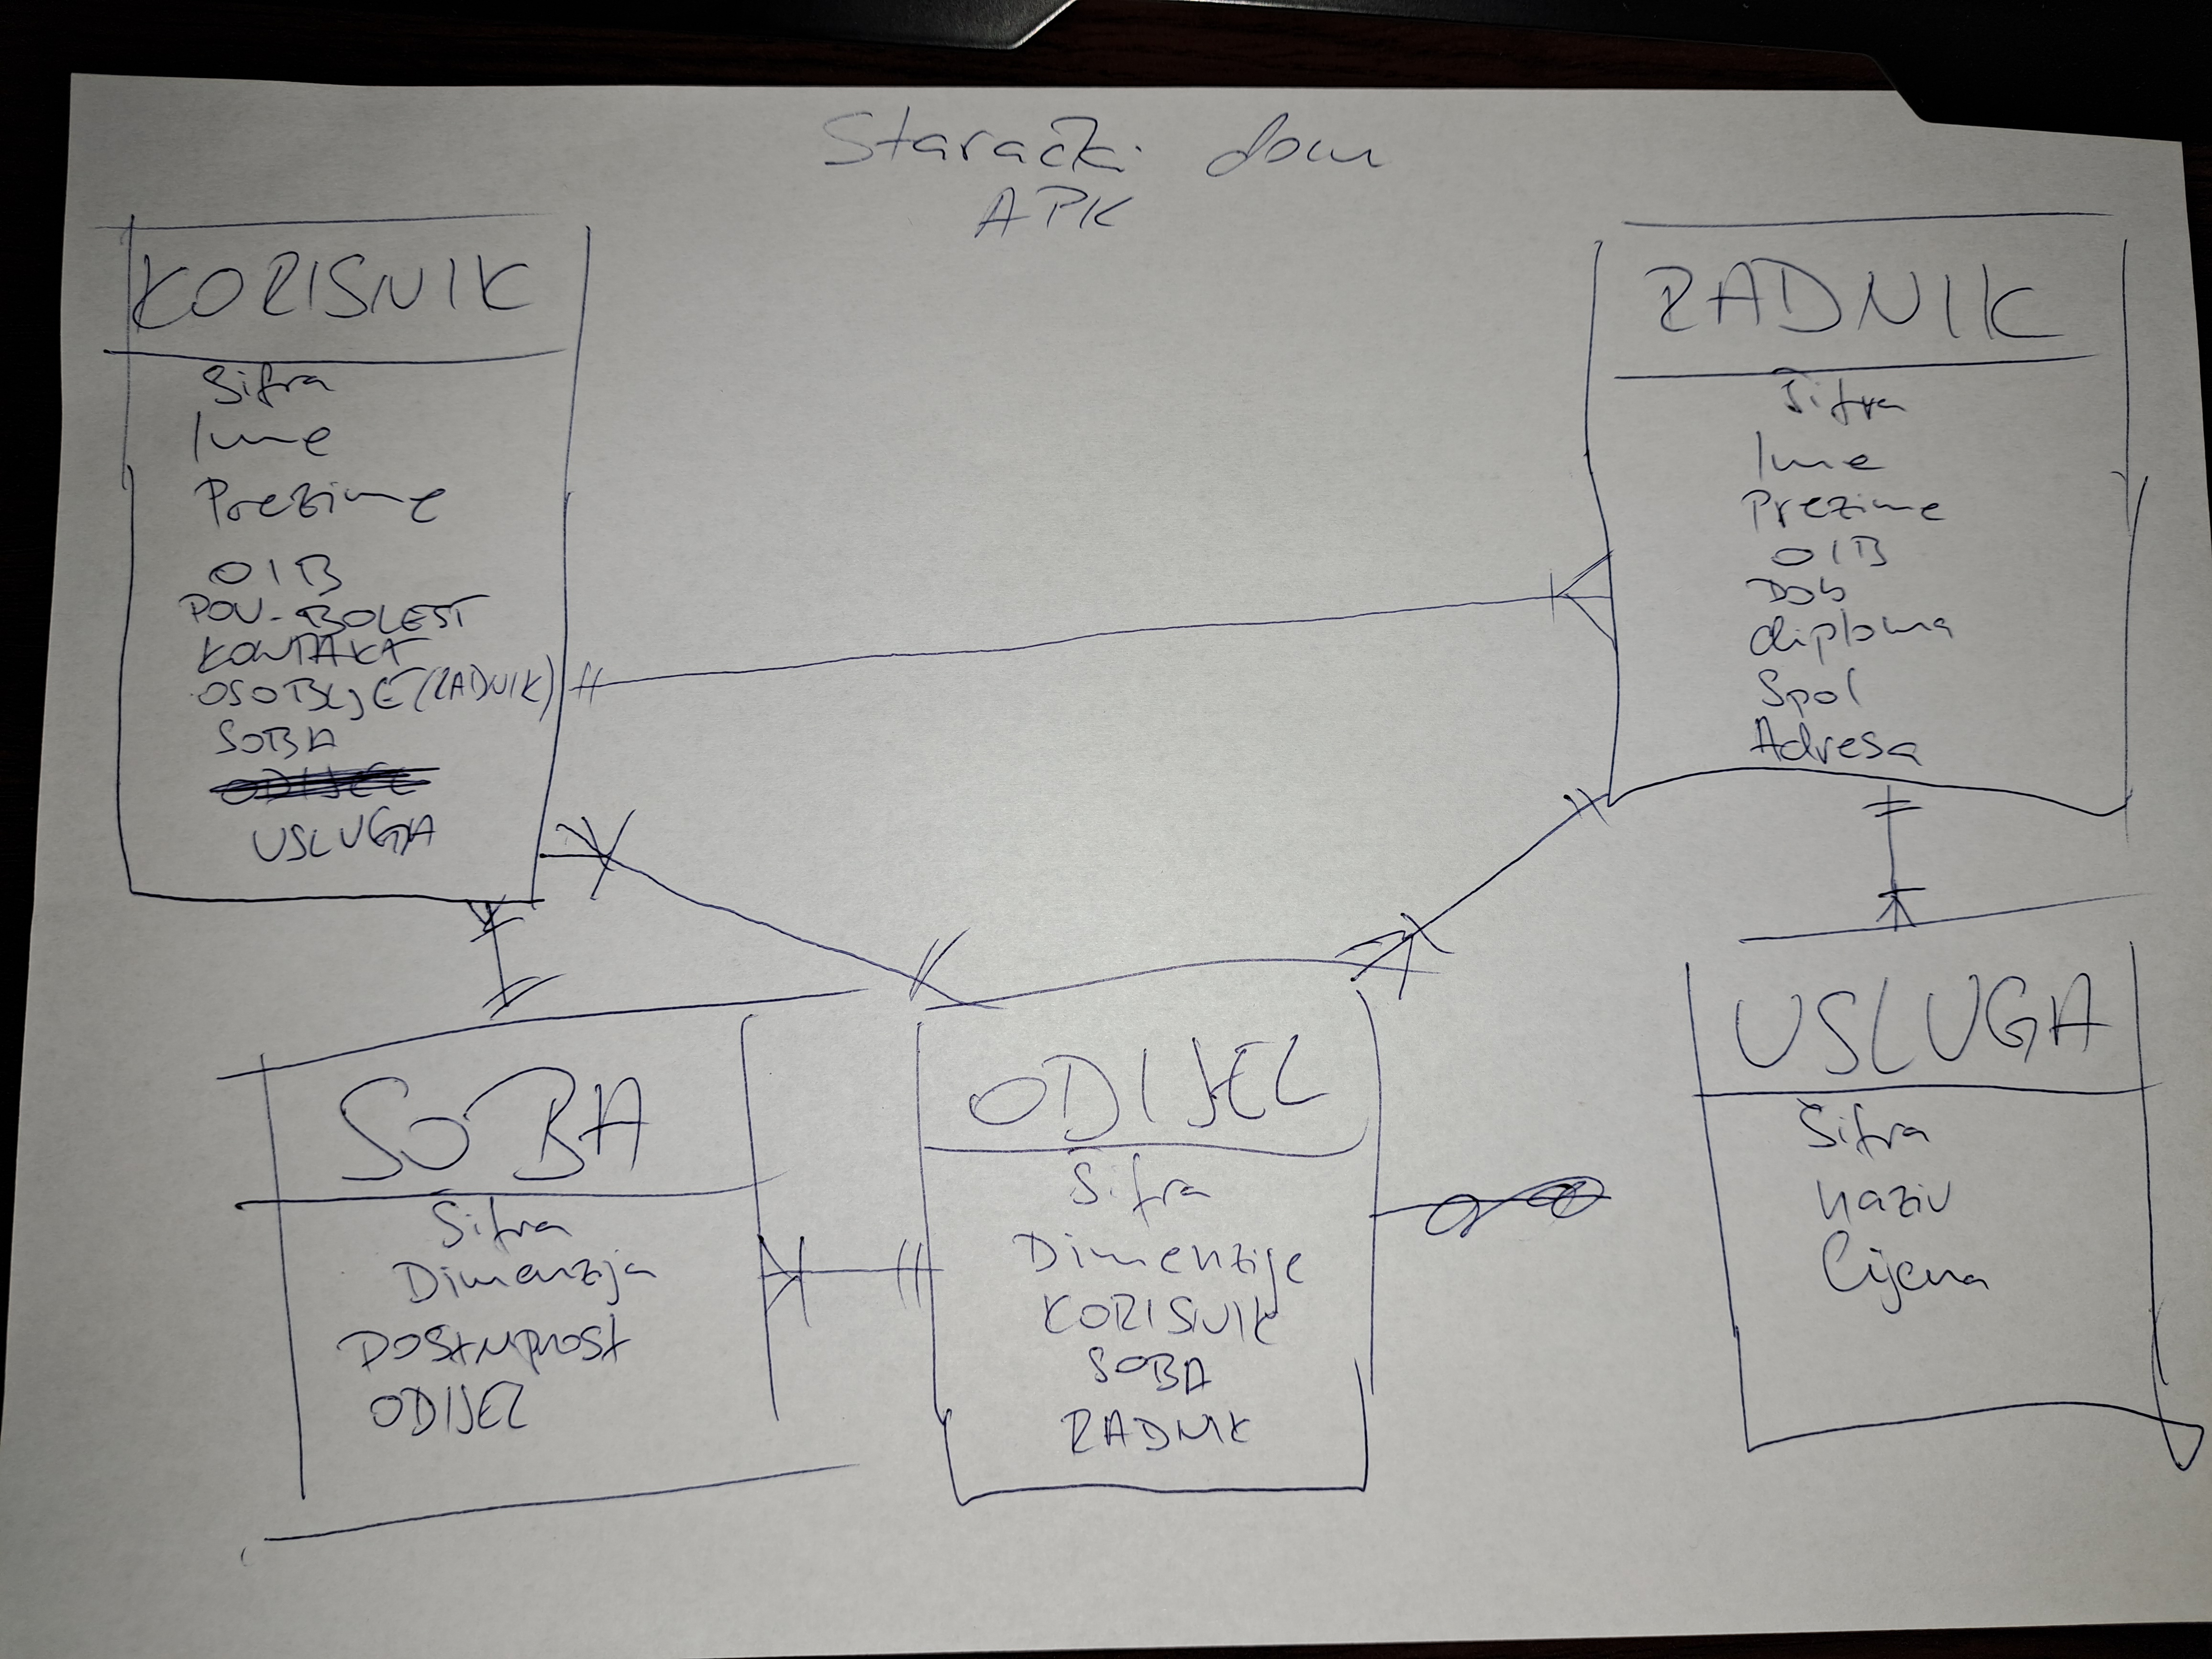 Starački dom
APK
KORISNIK
Šifra
Ime
Prezime
OIB
POV-BOLEST
KONTAKT
OSOBLJE (RADNIK)
SOBA
ODIJEL
USLUGA
RADNIK
Šifra
Ime
Prezime
OIB
Dob
diploma
Spol
Adresa
SOBA
Šifra
Dimenzija
DOSTUPNOST
ODIJEL
ODIJEL
Šifra
Dimenzije
KORISNIK
SOBA
RADNIK
USLUGA
Šifra
naziv
Cijena